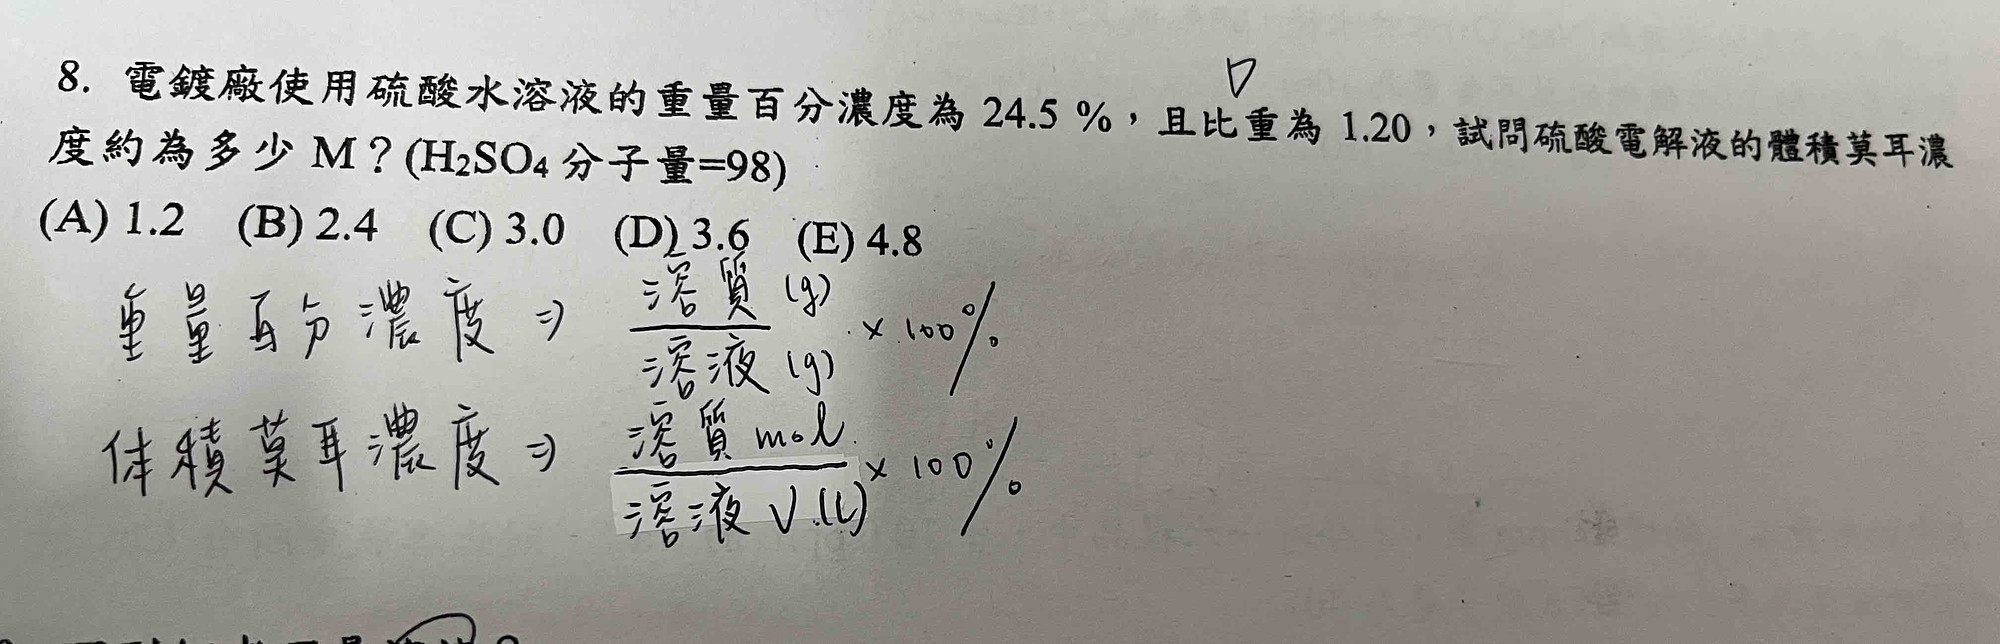 8. 電鍍廠使用硫酸水溶液的重量百分濃度為 24.5 %，且比重為 1.20，試問硫酸電解液的體積莫耳濃
度約為多少 M？(H₂SO₄ 分子量=98)
(A) 1.2 (B) 2.4 (C) 3.0 (D) 3.6 (E) 4.8
D
重量百分濃度 ⇒ 溶質 (g) / 溶液 (g) × 100%
体積莫耳濃度 ⇒ 溶質 mol / 溶液 V.(L) × 100%